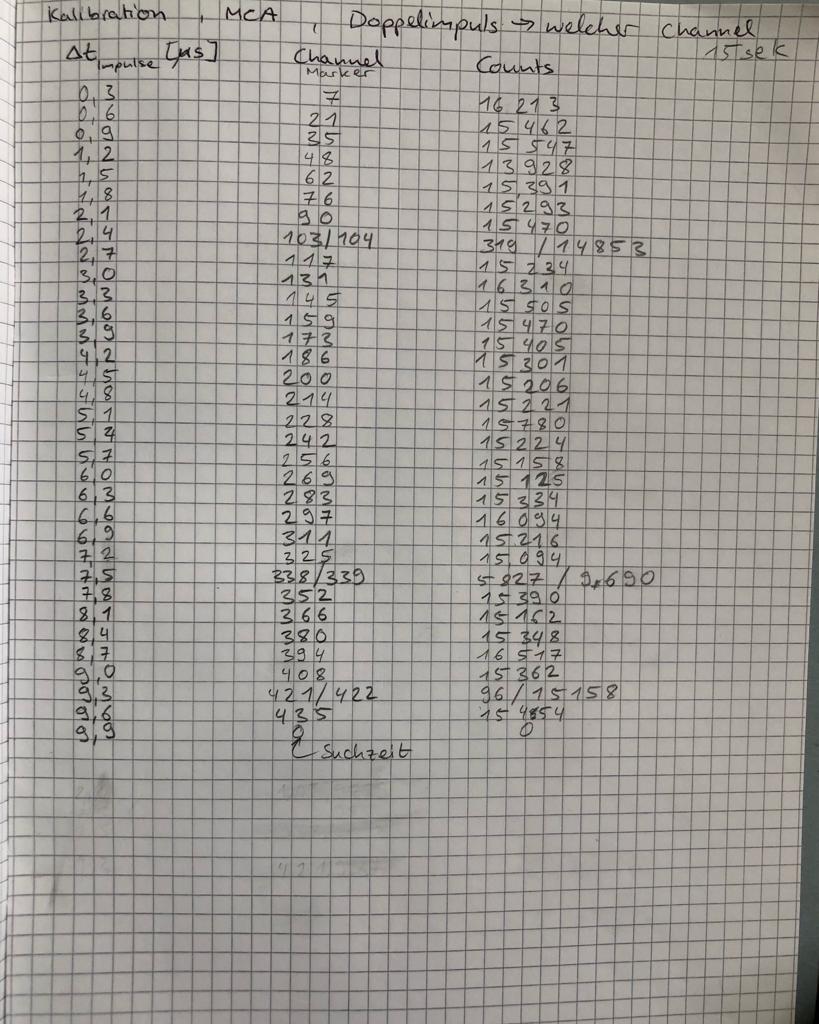 Kalibration, MCA, Doppelimpuls → welcher Channel
15 sek
Δt Impulse [µs] Channel Marker Counts
0,3 7 16 213
0,6 21 15 462
0,9 35 15 547
1,2 48 13 928
1,5 62 15 391
1,8 76 15 293
2,1 90 15 470
2,4 103/104 319 / 14853
2,7 117 15 234
3,0 131 16 310
3,3 145 15 505
3,6 159 15 470
3,9 173 15 405
4,2 186 15 301
4,5 200 15 206
4,8 214 15 221
5,1 228 15 780
5,4 242 15 224
5,7 256 15 158
6,0 269 15 125
6,3 283 15 334
6,6 297 16 094
6,9 311 15 216
7,2 325 15 094
7,5 338/339 5 827 / 9 690
7,8 352 15 390
8,1 366 15 162
8,4 380 15 348
8,7 394 16 517
9,0 408 15 362
9,3 421/422 96/15158
9,6 435
9,9 0 0
Suchzeit